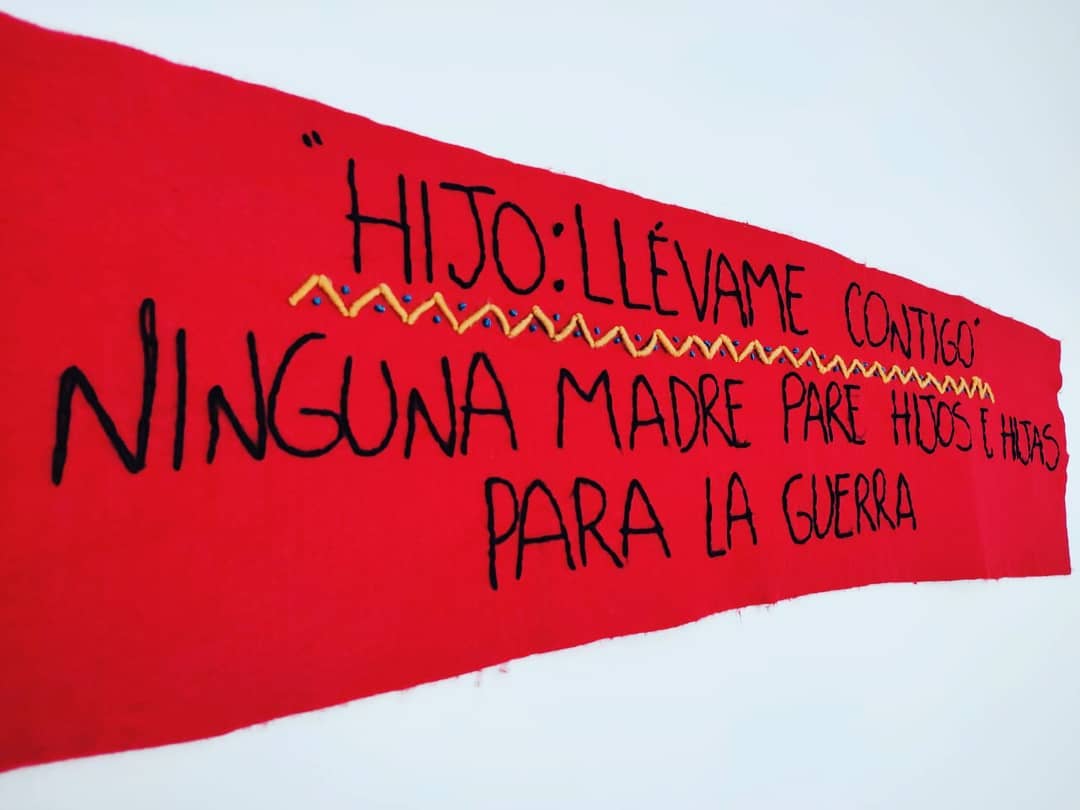 "HIJO: LLÉVAME CONTIGO"
NINGUNA MADRE PARE HIJOS E HIJAS
PARA LA GUERRA